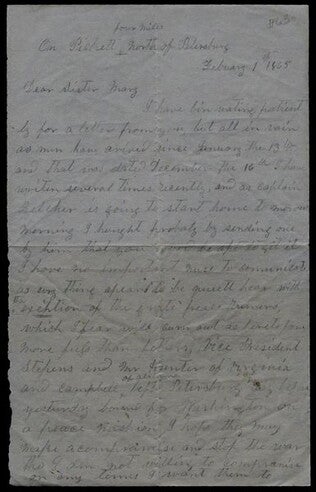 four miles
On Pickett North of Petersburg
Febuary 1st 1865
Dear Sister Mary
I have bin wating patient
ly for a letter from you but all in vain
as non have arived since January the 13th
and that was dated December the 16th I have
writen several times recently, and as captain
is going to start home to morrow
morning I thought probaly by sending one
by him that you
I have no important nuse to comunicate
as ery thing apears to be quiett hear with
exception of the
which I fear will turn out as heretofore
more fuss than Vice President
Stephens and Mr Hunter of Virginia
and Campbell of left Petersburg
yesterday bound for Washington on
a peace mission I hope they may
make a compromise and stop the war
tho I am not willing to compromise
on any terms I want them to